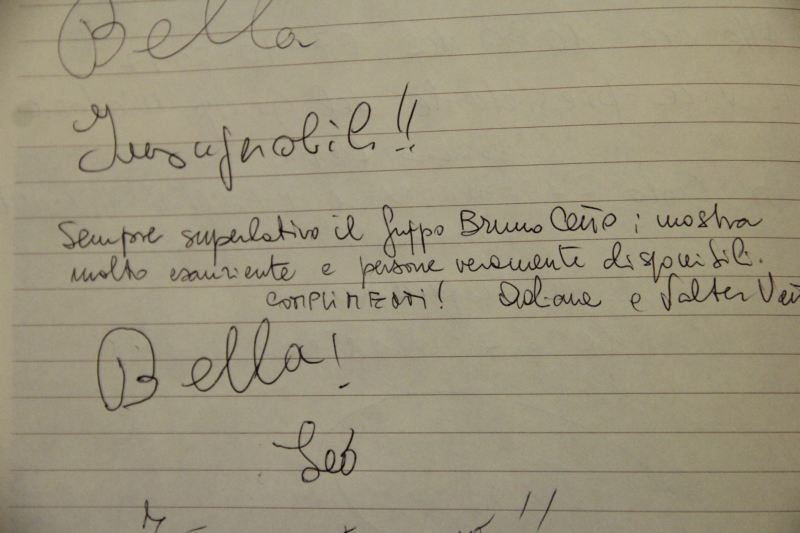 Bella
Insuperabili!!
Sempre superlativo il gruppo Bruno ; mostra
molto esauriente e persone veramente disponibili.
COMPLIMENTI! e Valter
Bella!
Leo
!!